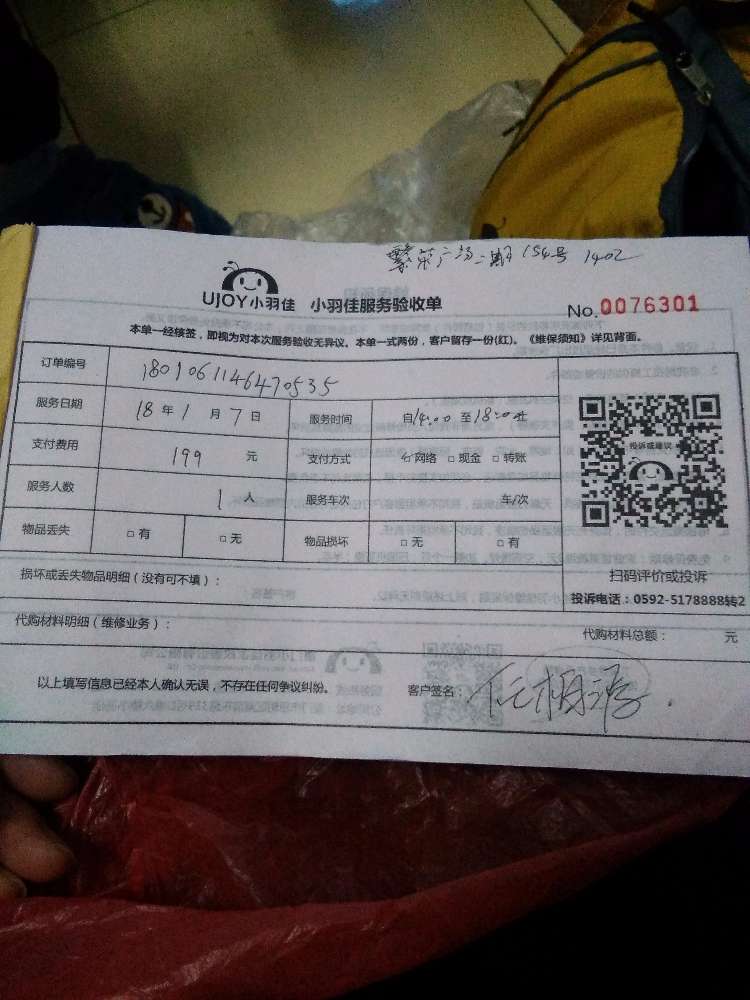 繁荣广场二期154号 1402
UJOY小羽佳 小羽佳服务验收单
No.0076301
本单一经核签，即视为对本次服务验收无异议。本单一式两份，客户留存一份(红)。《维保须知》详见背面。
订单编号 1801061146470535
服务日期 18年1月7日 服务时间 自14:00至18:00止
支付费用 199 元 支付方式 网络 □现金 □转账
服务人数 1 人 服务车次 车/次
物品丢失 □有 □无 物品损坏 □无 □有
投诉或建议
扫码评价或投诉
投诉电话：0592-5178888转2
损坏或丢失物品明细（没有可不填）：
代购材料明细（维修业务）： 代购材料总额： 元
以上填写信息已经本人确认无误，不存在任何争议纠纷。 客户签名：